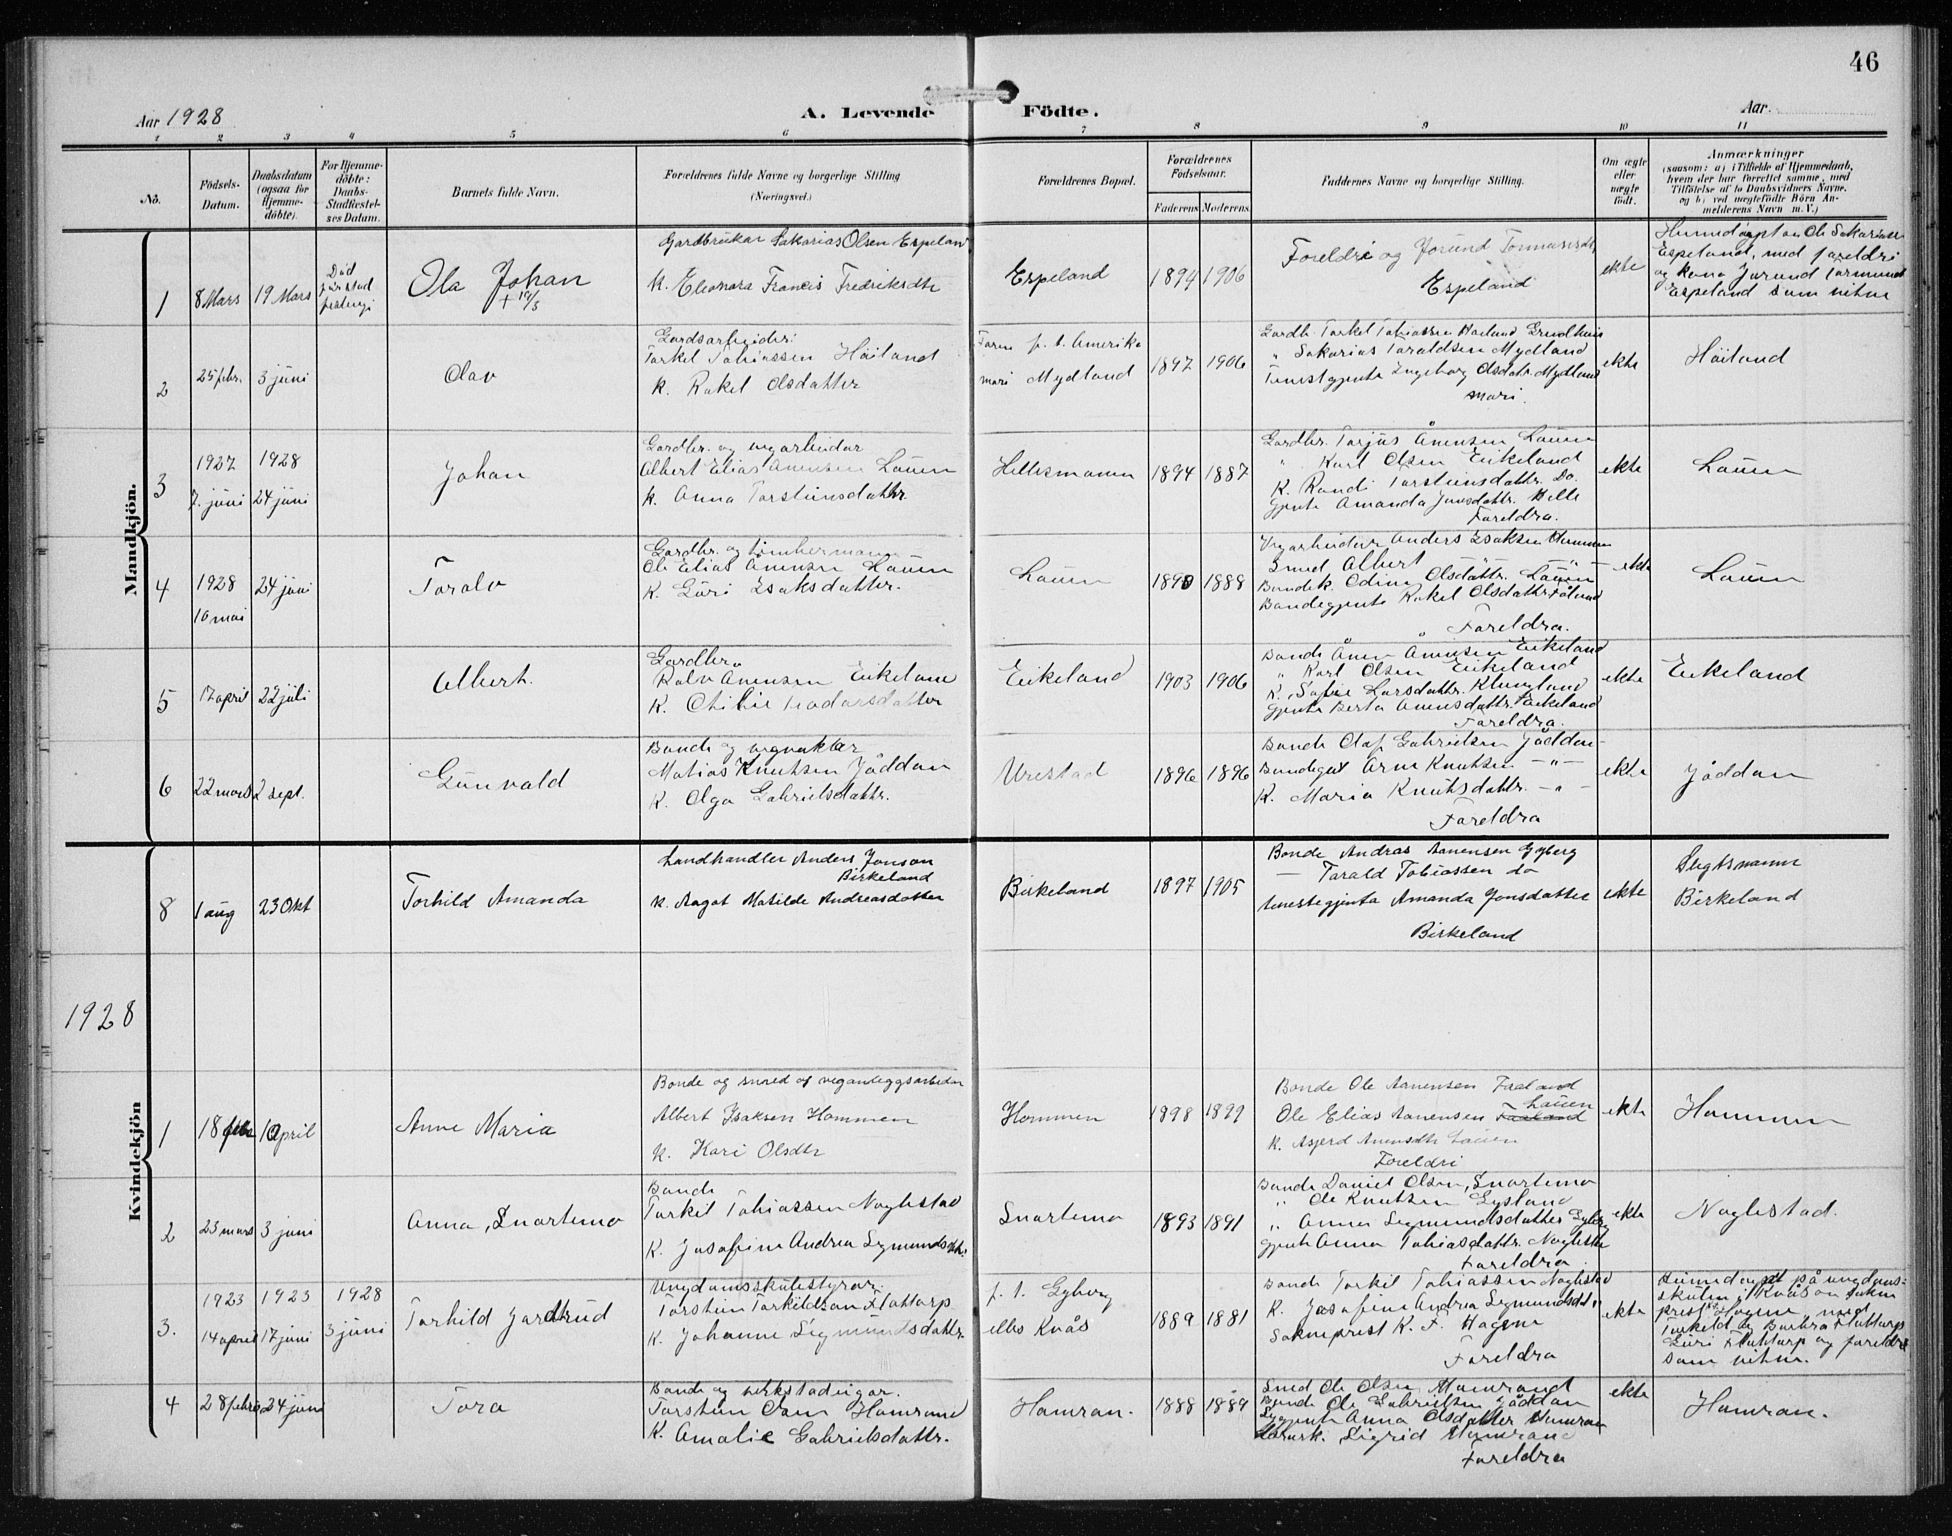 46
Aar 1928
A. Levende
Födte.
Aar.
1 2 3 4 5 6 7 8 9 10 11
No.
Födsels-
Datum.
Daabsdatum
(ogsaa for
Hjemme-
döbte).
For Hjemme-
döbte:
Daabs-
Stadfæstel-
ses Datum.
Barnets fulde Navn.
Forældrenes fulde Navne og borgerlige Stilling
(Næringsvei.)
Forældrenes Bopæl.
Forældrenes
Födselsaar.
Faderens Moderens
Faddernes Navne og borgerlige Stilling.
Om ægte
eller
uægte
födt.
Anmærkninger
(saasom: a) i Tilfælde af Hjemmedaab,
hvem der har forrettet samme, med
Tilföielse af to Daabsvidners Navne,
og b) ved uægtefödte Börn An-
melderens Navn m. V.)
Mandkjön.
1
8 Mars
19 Mars
Död
för stad
festingi
Ola Johan
+ 19/3
Gardbrukar Sakarias Olsen Espeland
K. Eleonora Francis Fredriksdtr
Espeland
1894 1906
Foreldre og Jorund
Espeland
ekte
Espeland, med foreldri
og kona Jorund
Espeland som vitne
2
25 febr.
3 juni
Olav
Gardsarbeider:
Torkel Tobiassen Höiland
K. Rakel Olsdatter
p. t. Amerika
Mydland
1897 1906
Gardb. Torkel Tobiassen
" Sakarias Taraldsen Mydland
Ingeborg Olsdatr. Mydland
ekte
Höiland
3
1927
7. juni
1928
24 juni
Johan
Gardbr. og vegarbeidar
Albert Elias Anensen Lauen
K. Anna Torsteinsdattr
1894 1887
Gardbr. Torjus Ånensen Lauen
" Karl Olsen Eikeland
K. Randi Torsteinsdattr. Do.
gjente Amanda Jonsdattr. Helle
Foreldra.
ekte
Lauen
4
1928
10 mai
24 juni
Toralv
Gardbr. og timbermann
Ole Elias Anensen Lauen
K. Guri Isaksdatter.
Lauen
1890 1888
Vegarbeidar Anders Isaksen Hommen
Smed Albert — " —
Bondek. Odine Olsdattr. Lauen
Bondegjente Rakel Olsdattr.
Foreldra.
ekte
Lauen
5
17 april
22 juli
Albert.
Gardbr.
Ånensen Eikeland
K.
Eikeland
1903 1906
Bonde Ånen Ånensen Eikeland
" Karl Olsen Eikeland
K. Sofie Larsdattr.
gjente Berta Anensdattr. Eikeland
Foreldra.
ekte
Eikeland
6
22 mars
2 sept.
Gunvald
Bonde og vegvakter
Matias Knutsen Jåddan
K. Olga Gabrielsdattr.
Urestad
1896 1896
Bonde Olaf Gabrielsen Jåddan
Bondegut Arne Knutsen — " —
K. Maria Knutsdattr. — " —
Foreldra
ekte
Jåddan
8
1 aug
23 Okt
Torhild Amanda
Landhandler Anders Jonson
Birkeland
K. Aagot Matilde Andreasdatter
Birkeland
1897 1905
Bonde Andras Aanensen Gyberg
— Tarald Tobiassen do
tenestegjenta Amanda Jonsdatter
Birkeland
ekte
Birkeland
1928
Kvindekjön
1
18 febr
1 April
Anne Maria
Bonde og smed og veganleggsarbeidar
Albert Isaksen Hommen
K. Kari Olsdtr
Hommen
1898 1899
Bonde Ole Aanensen
Lauen
Ole Elias Aanensen
K. Asjerd Anensdtr Lauen
Foreldri
ekte
Hommen
2
23 mars
3 juni
Anna, Snartemo
Bonde
Torkel Tobiassen Naglestad
K. Josefine Andrea Segmundsdtr.
Snartemo
1893 1891
Bonde Daniel Olsen, Snartemo
" Ole Knutsen Gysland
" Anna Segmundsdatter Gyberg
gjente Anna Tobiasdattr. Naglestad
Foreldra.
ekte
Naglestad.
3.
1923
14 april
1923
17 juni
1928
3 juni
Torhild Jardtrud
Ungdomsskulestyrar.
Torstein Torkildson Flottorp
K. Johanne Segmundsdattr.
p. t. Gyberg
elles Kvås
1889 1881
Bonde Torkil Tobiassen Naglestad
K. Josefine Andrea Segmundsdtr.
Sokneprest K. F. Hagene
Foreldra
ekte
Heimedöypt på ungdoms-
skulen i Kvås av sokne
prest Hagene, med
Torkild og Barbra Flottorp
Guri Flottorp og foreldri
som vitne.
4
28 febr
24 juni
Tora
Bonde og verkstadeigar.
Torstein Hamrand
K. Amalie Gabrielsdattr.
Hamran.
1888 1889
Smed Ole Olsen Hamrand
Bonde Ole Gabrielsen Jåddan
Anna Olsdatter Hamran
Sigrid Hamrand
Foreldra
ekte
Hamran.